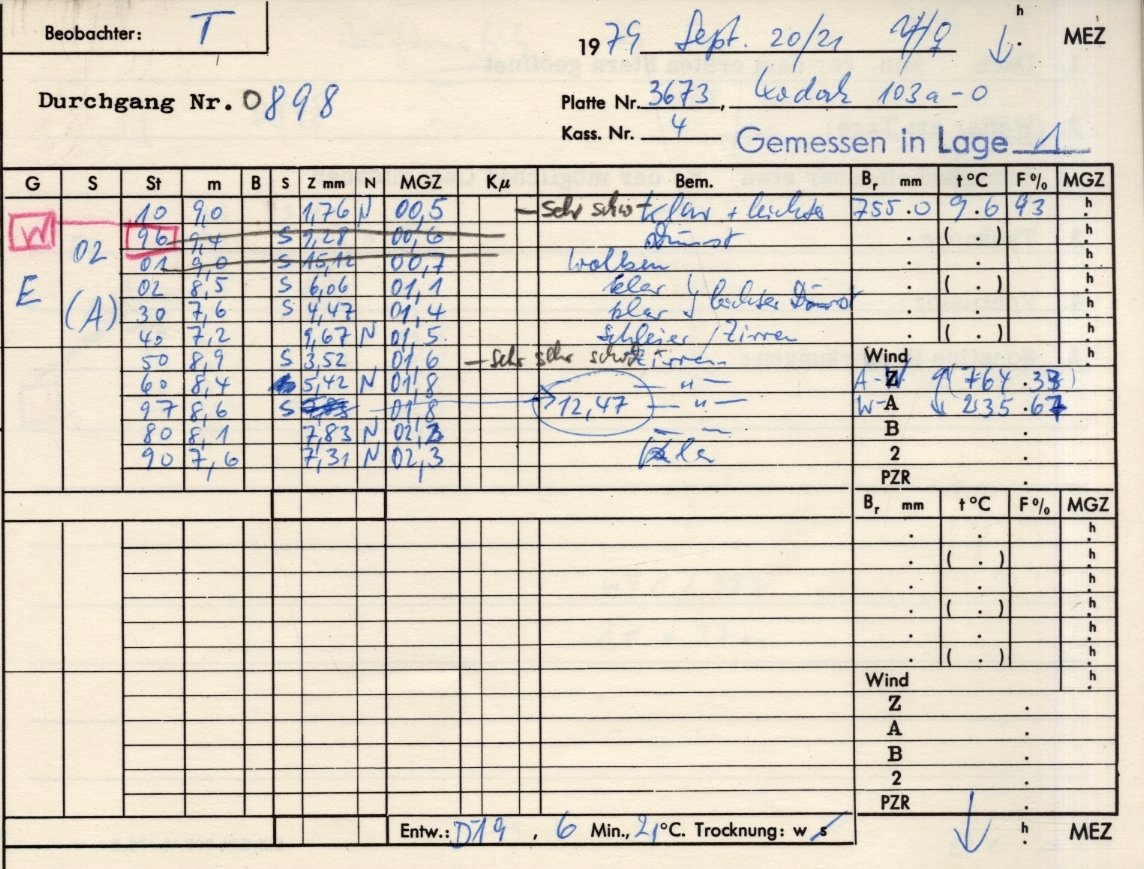 Beobachter: T
1979 Sept. 20/21 h MEZ
Durchgang Nr. 0898
Platte Nr. 3673, Kodak 103a-0
Kass. Nr. 4
Gemessen in Lage 1
G S St m B S Z mm N MGZ Kμ Bem. Br mm t °C F % MGZ
W 10 9,0 1,76 N 00,5 – sehr klar + leichter 755.0 9.6 93 h
02 96 9,4 S 9,28 00,6 Dunst . ( . ) h
01 9,0 S 15,12 00,7 Wolken . . h
E 02 8,5 S 6,06 01,1 klar . ( . ) h
(A) 30 7,6 S 4,47 01,4 klar leichter Dunst . . h
40 7,2 9,67 N 01,5 Schleier / Zirren . ( . ) h
50 8,9 S 3,52 01,6 – sehr sehr Zirren Wind h
60 8,4 5,42 N 01,8 – " – Z 764 .33
97 8,6 S 01,8 12,47 – " – W- A 235 .67
80 8,1 7,83 N 02,2 B .
90 7,6 7,31 N 02,3 2 .
PZR .
Br mm t °C F % MGZ
. . h
. ( . ) h
. . h
. ( . ) h
. . h
. ( . ) h
Wind h
Z .
A .
B .
2 .
PZR .
Entw.: D19 , 6 Min., 21 °C. Trocknung: w s h MEZ